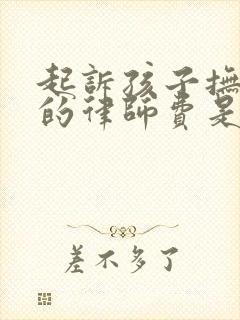 起訴孩子撫
的律師費是
差不多了